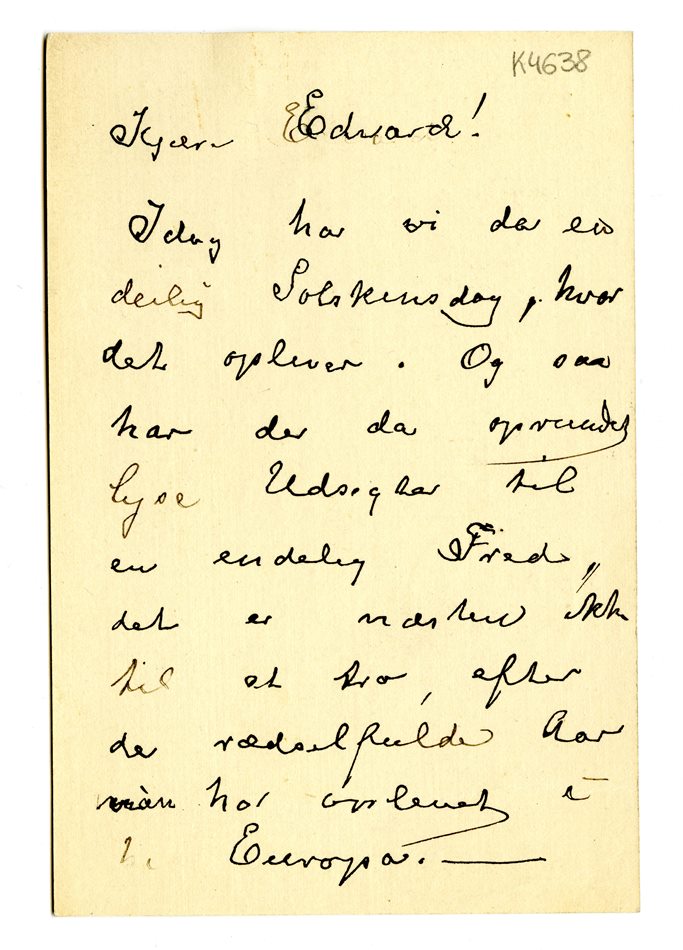 K4638
Kjære Edvard!
Idag har vi da en
deilig Solskinsdag, hvor
det oplever. Og saa
har der da oprundet
lyse Udsigter til
en endelig Fred,,
det er næsten ikke
til at tro, efter
de rædselfulde Aar
man har oplevet i
Europa.